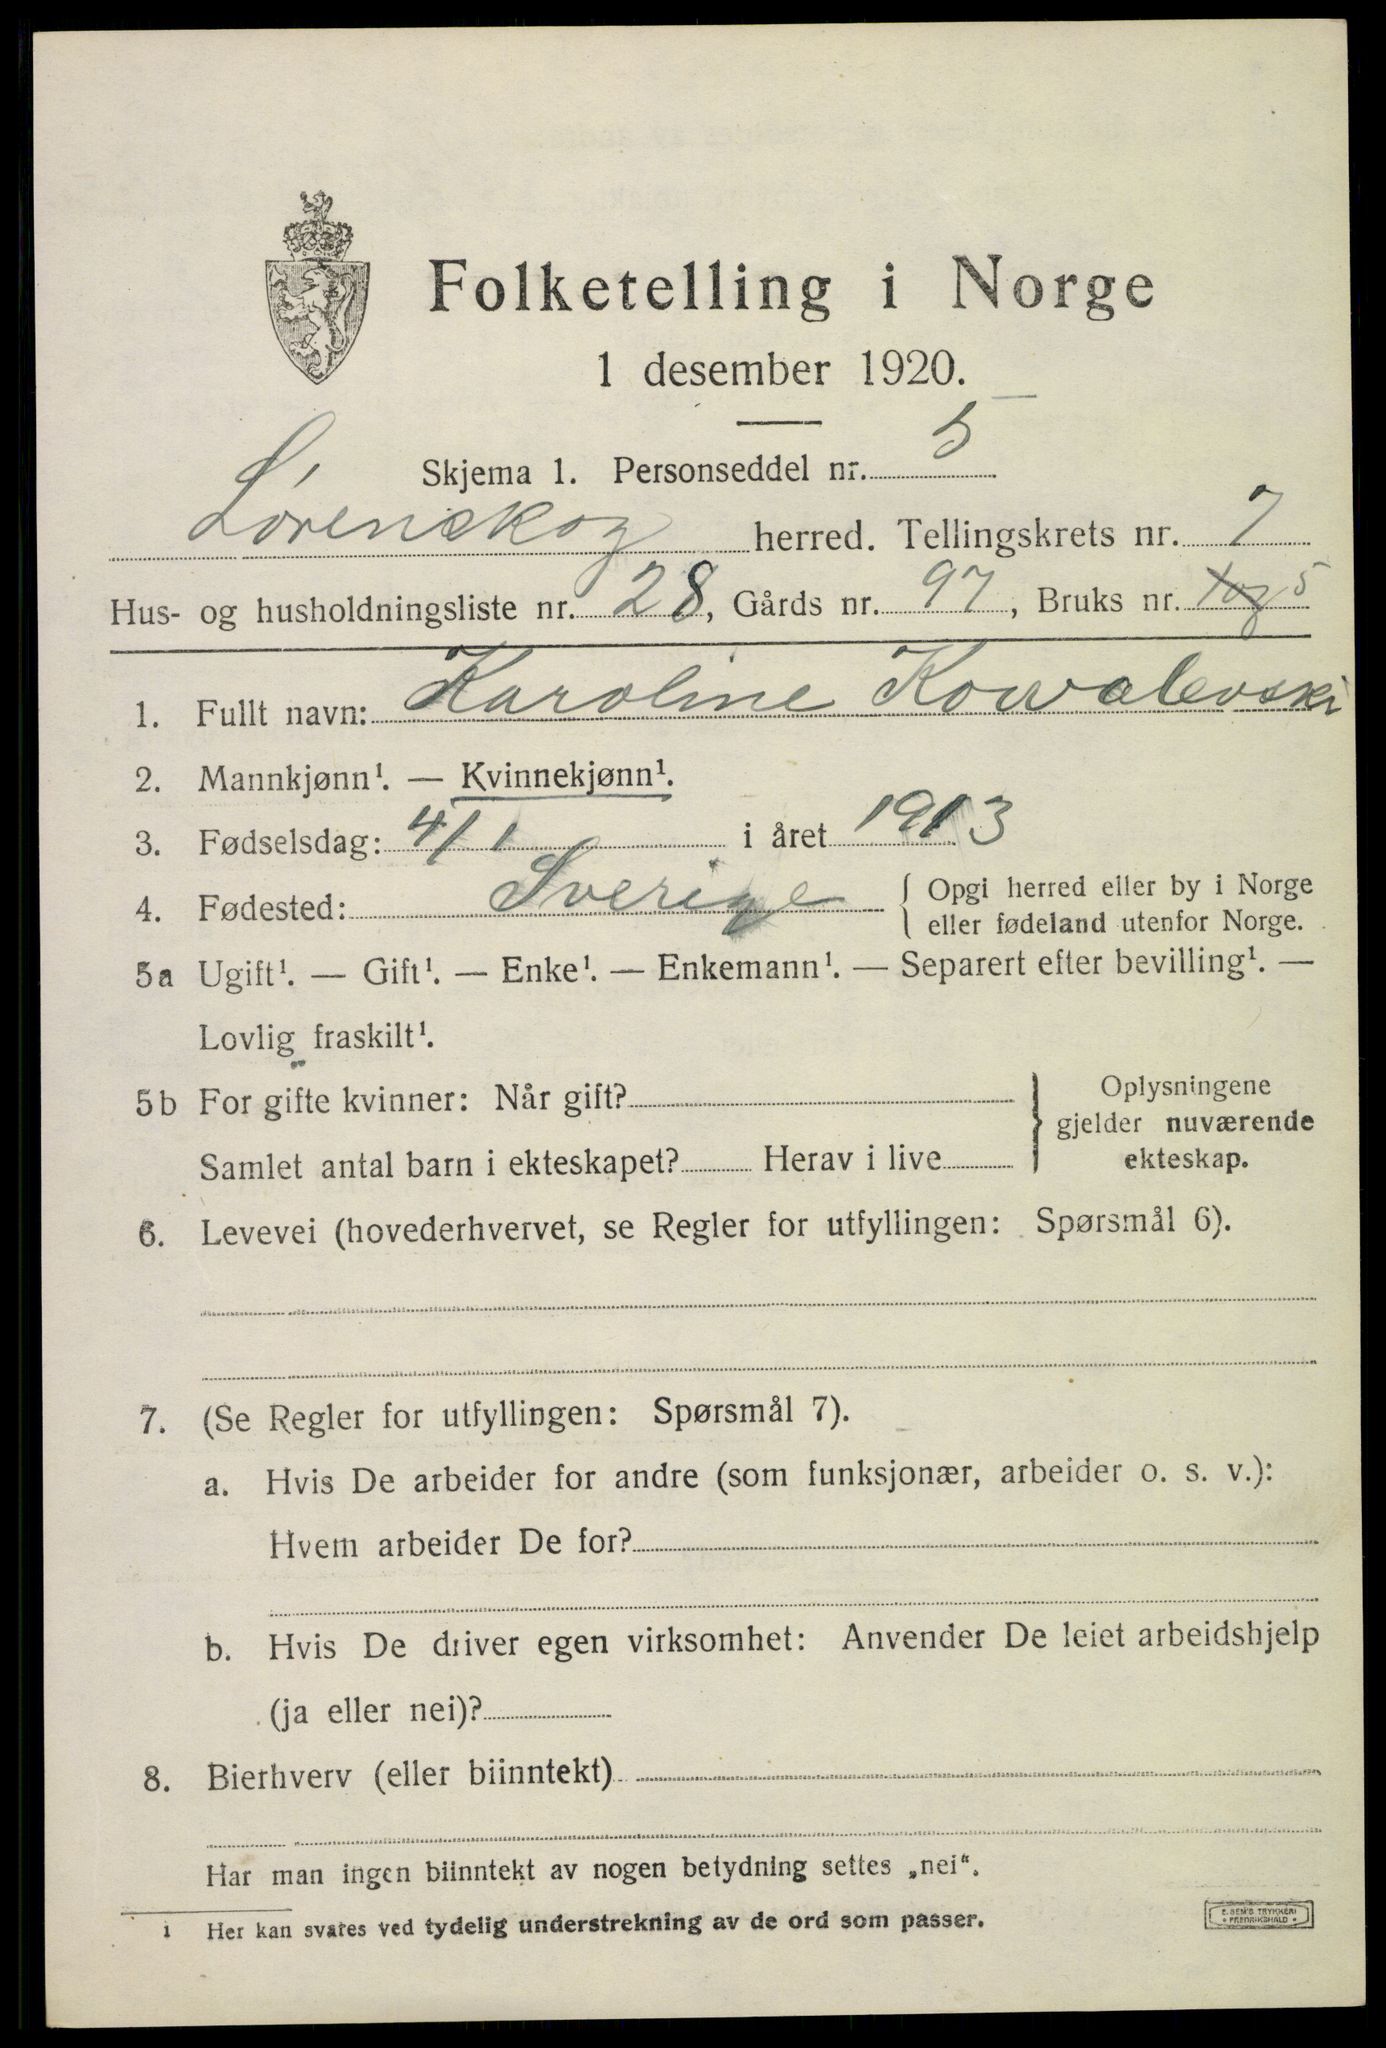 Folketelling i Norge
1 desember 1920.
Skjema 1. Personseddel nr. 5
Lørenskog herred. Tellingskrets nr. 7
Hus- og husholdningsliste nr. 28, Gårds nr. 97, Bruks nr. 5
1. Fullt navn: Karoline Kowalevski
2. Mannkjønn¹. — Kvinnekjønn¹.
3. Fødselsdag: 4/1 i året 1913
4. Fødested: Sverige { Opgi herred eller by i Norge
eller fødeland utenfor Norge.
5a Ugift¹. — Gift¹. — Enke¹. — Enkemann¹. — Separert efter bevilling¹. —
Lovlig fraskilt¹.
5b For gifte kvinner: Når gift?
Samlet antal barn i ekteskapet? Herav i live
} Oplysningene
gjelder nuværende
ekteskap.
6. Levevei (hovederhvervet, se Regler for utfyllingen: Spørsmål 6).
7. (Se Regler for utfyllingen: Spørsmål 7).
a. Hvis De arbeider for andre (som funksjonær, arbeider o. s. v.):
Hvem arbeider De for?
b. Hvis De driver egen virksomhet: Anvender De leiet arbeidshjelp
(ja eller nei)?
8. Bierhverv (eller biinntekt)
Har man ingen biinntekt av nogen betydning settes „nei“.
1 Her kan svares ved tydelig understrekning av de ord som passer.
E. SEM'S TRYKKERI
• FREDRIKSHALD •